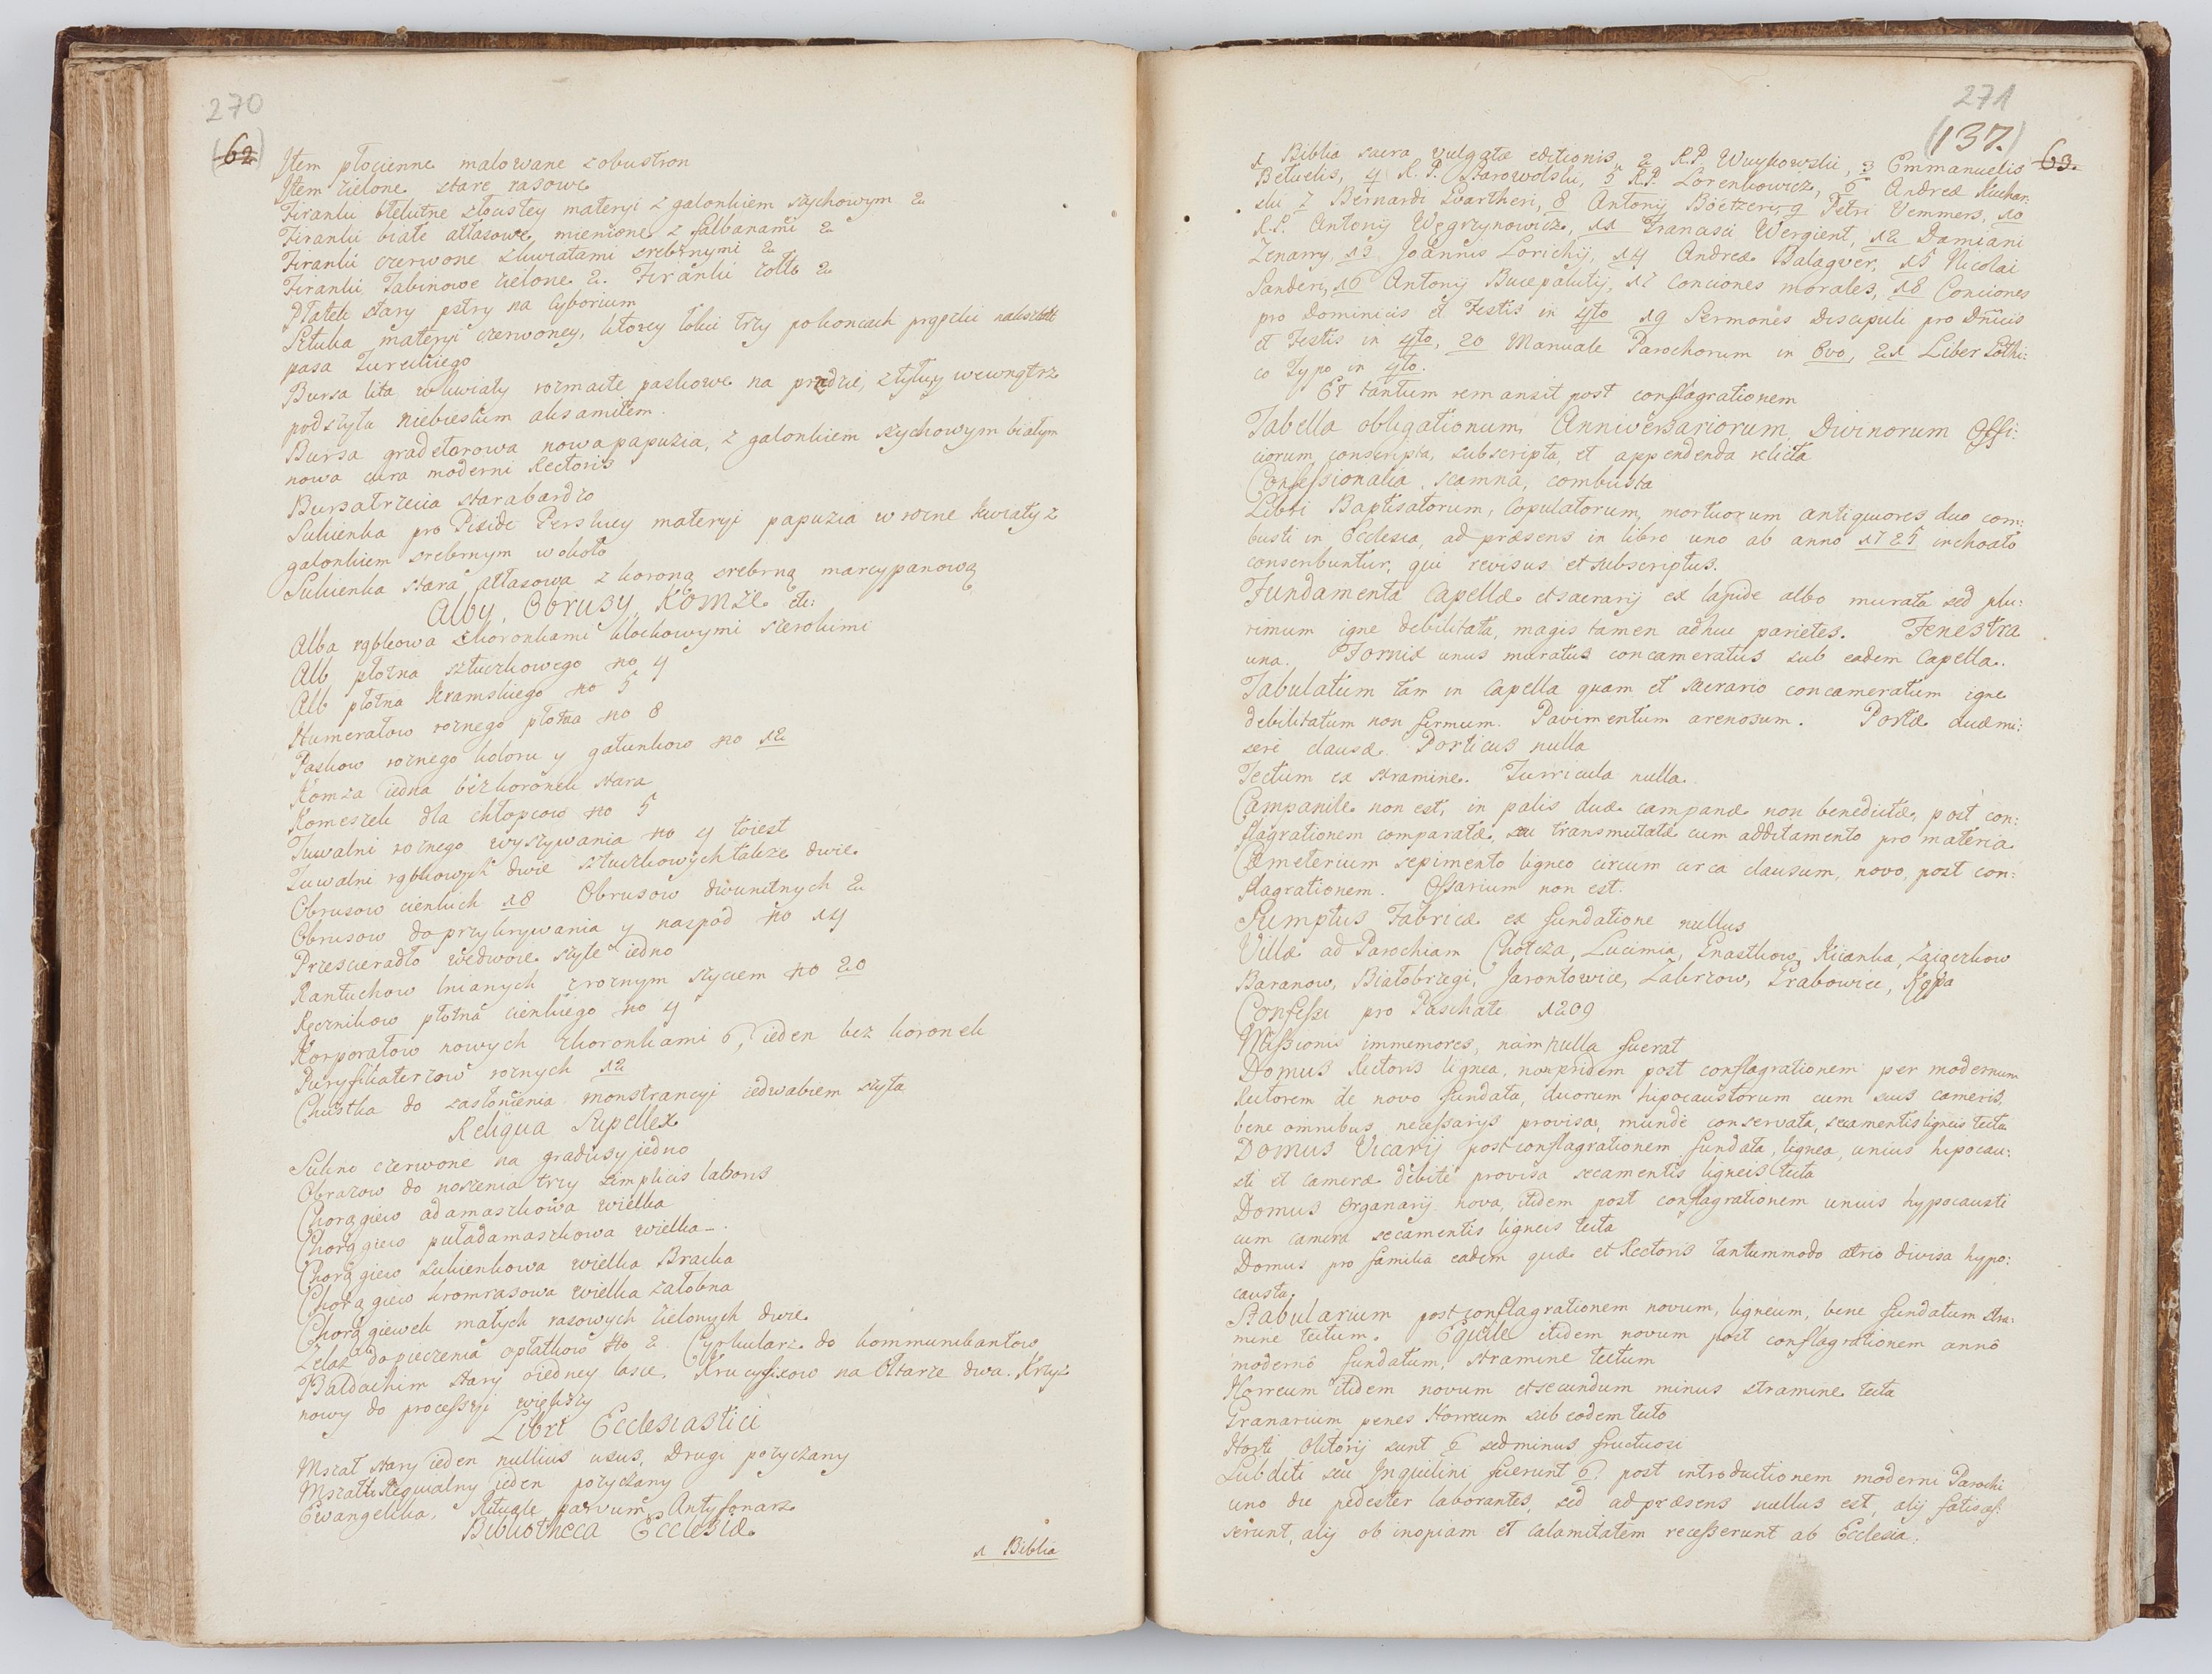 270
(62)
Jtem płocienne malowane z obustron
Jtem zielone stare rasowe
Firanki błekitne złocistey materyi z galonkiem szychowym 2
Firanki białe atłasowe mienione z falbanami 2
Firanki czerwone z kwiatami srebrnymi 2
Firanki Tabinowe zielone 2. Firanki żołte 2
Płatek stary pstry na Cyborium
Sztuka materyi czerwoney, ktorey łokci trzy po koncach prążki nakształt
pasa Tureckiego
Bursa lita w kwiaty rozmaite paskowe na przodzie, z tyłu y wewnątrz
podszyta niebieskim aksamitem.
Bursa gradetorowa nowa papuzia, z galonkiem szychowym białym
nowa cura moderni Rectoris
Bursa trzecia stara bardzo
Sukienka pro Piside Perskiey materyi papuzia w rozne kwiaty z
galonkiem srebrnym wokoło
Sukienka stara atłasowa z koroną srebrną marcypanową
Alby, Obrusy, Komze etc:
Alba rąbkowa z koronkami klockowymi szerokimi
Alb płotna sztuczkowego no 4
Alb płotna kramskiego no 5
Humerałow roznego płotna no 8
Paskow roznego koloru y gatunkow no 12
Komza iedna bez koronek stara
Komeszek dla chłopcow no 5
Tuwalni roznego wyszywania no 4 toiest
Tuwalni rąbkowych dwie sztuczkowych także dwie
Obrusow cienkich 18 Obrusow dwunitnych 2
Obrusow do przykrywania y naspod no 14
Przescieradło wedwoie szyte iedno
Rantuchow lnianych z roznym szyciem no 20
Ręcznikow płotna cienkiego no 4
Korporałow nowych z koronkami 6, ieden bez koronek
Puryfikaterzow roznych 12
Chustka do zasłonienia monstrancyi iedwabiem szyta
Reliqua Supellex
Sukno czerwone na gradusy jedno
Obrazow do noszenia trzy simplicis laboris
Chorągiew adamaszkowa wielka
Chorągiew puładamaszkowa wielka
Chorągiew sukienkowa wielka Bracka
Chorągiew kromrasowa wielka załobna
Chorągiewek małych rasowych zielonych dwie
Zelaz do pieczenia opłatkow no 2 Cyrkularz do kommunikantow
Baldachim stary o iedney lasce, Krucyfixow na Ołtarze dwa. Krzyz
nowy do processyi większy
Libri Ecclesiastici
Mszał stary ieden nullius usus, Drugi pozyczany
Mszałki Requialny ieden pozyczany
Ewangelika, Rituale parvum Antyfonarz
Bibliotheca Ecclesiæ
1 Biblia
271
(137.)
63.
1 Biblia sacra vulgatæ editionis, 2 R.P. Wuykowski, 3 Emmanuelis
Betuelis, 4 R.P. Starowolski, 5 R.P. Lorenkowicz, 6 Andreæ Kuchar:
ski 7 Bernardi Gvartheri, 8 Antonij Böetzeri, 9 Petri Vemmers, 10
R.P. Antonij Węgrzynowicz, 11 Francisci Wergient, 12 Damiani
Zenarry, 13 Joannis Lorichij, 14 Andreæ Balagver, 15 Nicolai
Sanderi, 16 Antonij Bucepalutij, 17 Conciones morales, 18 Conciones
pro Dominicis et Festis in 4to 19 Sermones Discipuli pro Dnicis
et Festis in 4to, 20 Manuale Parochorum in 8vo, 21 Liber Gothi:
co Typo in 4to.
Et tantum remansit post conflagrationem
Tabella obligationum Anniversariorum, Divinorum Offi:
ciorum conscripta, subscripta, et appendenda relicta
Confessionalia, scamna, combusta
Libri Baptisatorum, Copulatorum, mortuorum antiquiores duo com:
busti in Ecclesia, ad præsens in libro uno ab anno 1725 inchoato
conscribuntur, qui revisus et subscriptus.
Fundamenta Capellæ et sacrarij ex lapide albo murata sed plu:
rimum igne debilitata, magis tamen adhuc parietes. Fenestra
una. Fornix unus muratus concameratus sub eadem Capella.
Tabulatum tam in Capella quam et sacrario concameratum igne
debilitatum non firmum. Pavimentum arenosum. Portæ duæ mi:
seri clausæ. Porticus nulla
Tectum ex stramine. Turricula nulla.
Campanile non est, in palis duæ campanæ non benedictæ, post con:
flagrationem comparatæ, seu transmutatæ cum additamento pro materia
Cæmeterium sepimento ligneo circum circa clausum, novo, post con:
flagrationem. Ossarium non est.
Sumptus Fabricæ ex fundatione nullus
Villæ ad Parochiam Chotcza, Lucimia, Gnastkow, Kiianka, Zaiączkow
Baranow, Białobrzegi, Jarontowice, Zakrzow, Grabowiec, Kępa
Confessi pro Paschate 1209
Missionis immemores, nam nulla fuerat
Domus Rectoris lignea, non pridem post conflagrationem per modernum
Rectorem de novo fundata, duorum hipocaustorum cum suis cameris,
bene omnibus necessarijs provisa, munde conservata, secamentis ligneis tecta
Domus Vicarij post conflagrationem fundata, lignea, unius hipocau:
sti et cameræ debite provisa secamentis ligneis tecta
Domus Organarij nova, itidem post conflagrationem unius hypocausti
cum camera secamentis ligneis tecta
Domus pro familia eadem quæ et Rectoris tantummodo atrio divisa hypo:
causta.
Stabularium post conflagrationem novum, ligneum, bene fundatum stra:
mine tectum. Equile itidem novum post conflagrationem anno
moderno fundatum, stramine tectum
Horreum itidem novum et secundum minus stramine tecta
Granarium penes Horreum sub eodem tecto
Horti Olitorij sunt 6 sed minus fructuosi
Subditi seu Jnquilini fuerunt 6. post introductionem moderni Parochi
uno die pedester laborantes, sed ad præsens nullus est, alij satisas:
serunt, alij ob inopiam et calamitatem recesserunt ab Ecclesia.